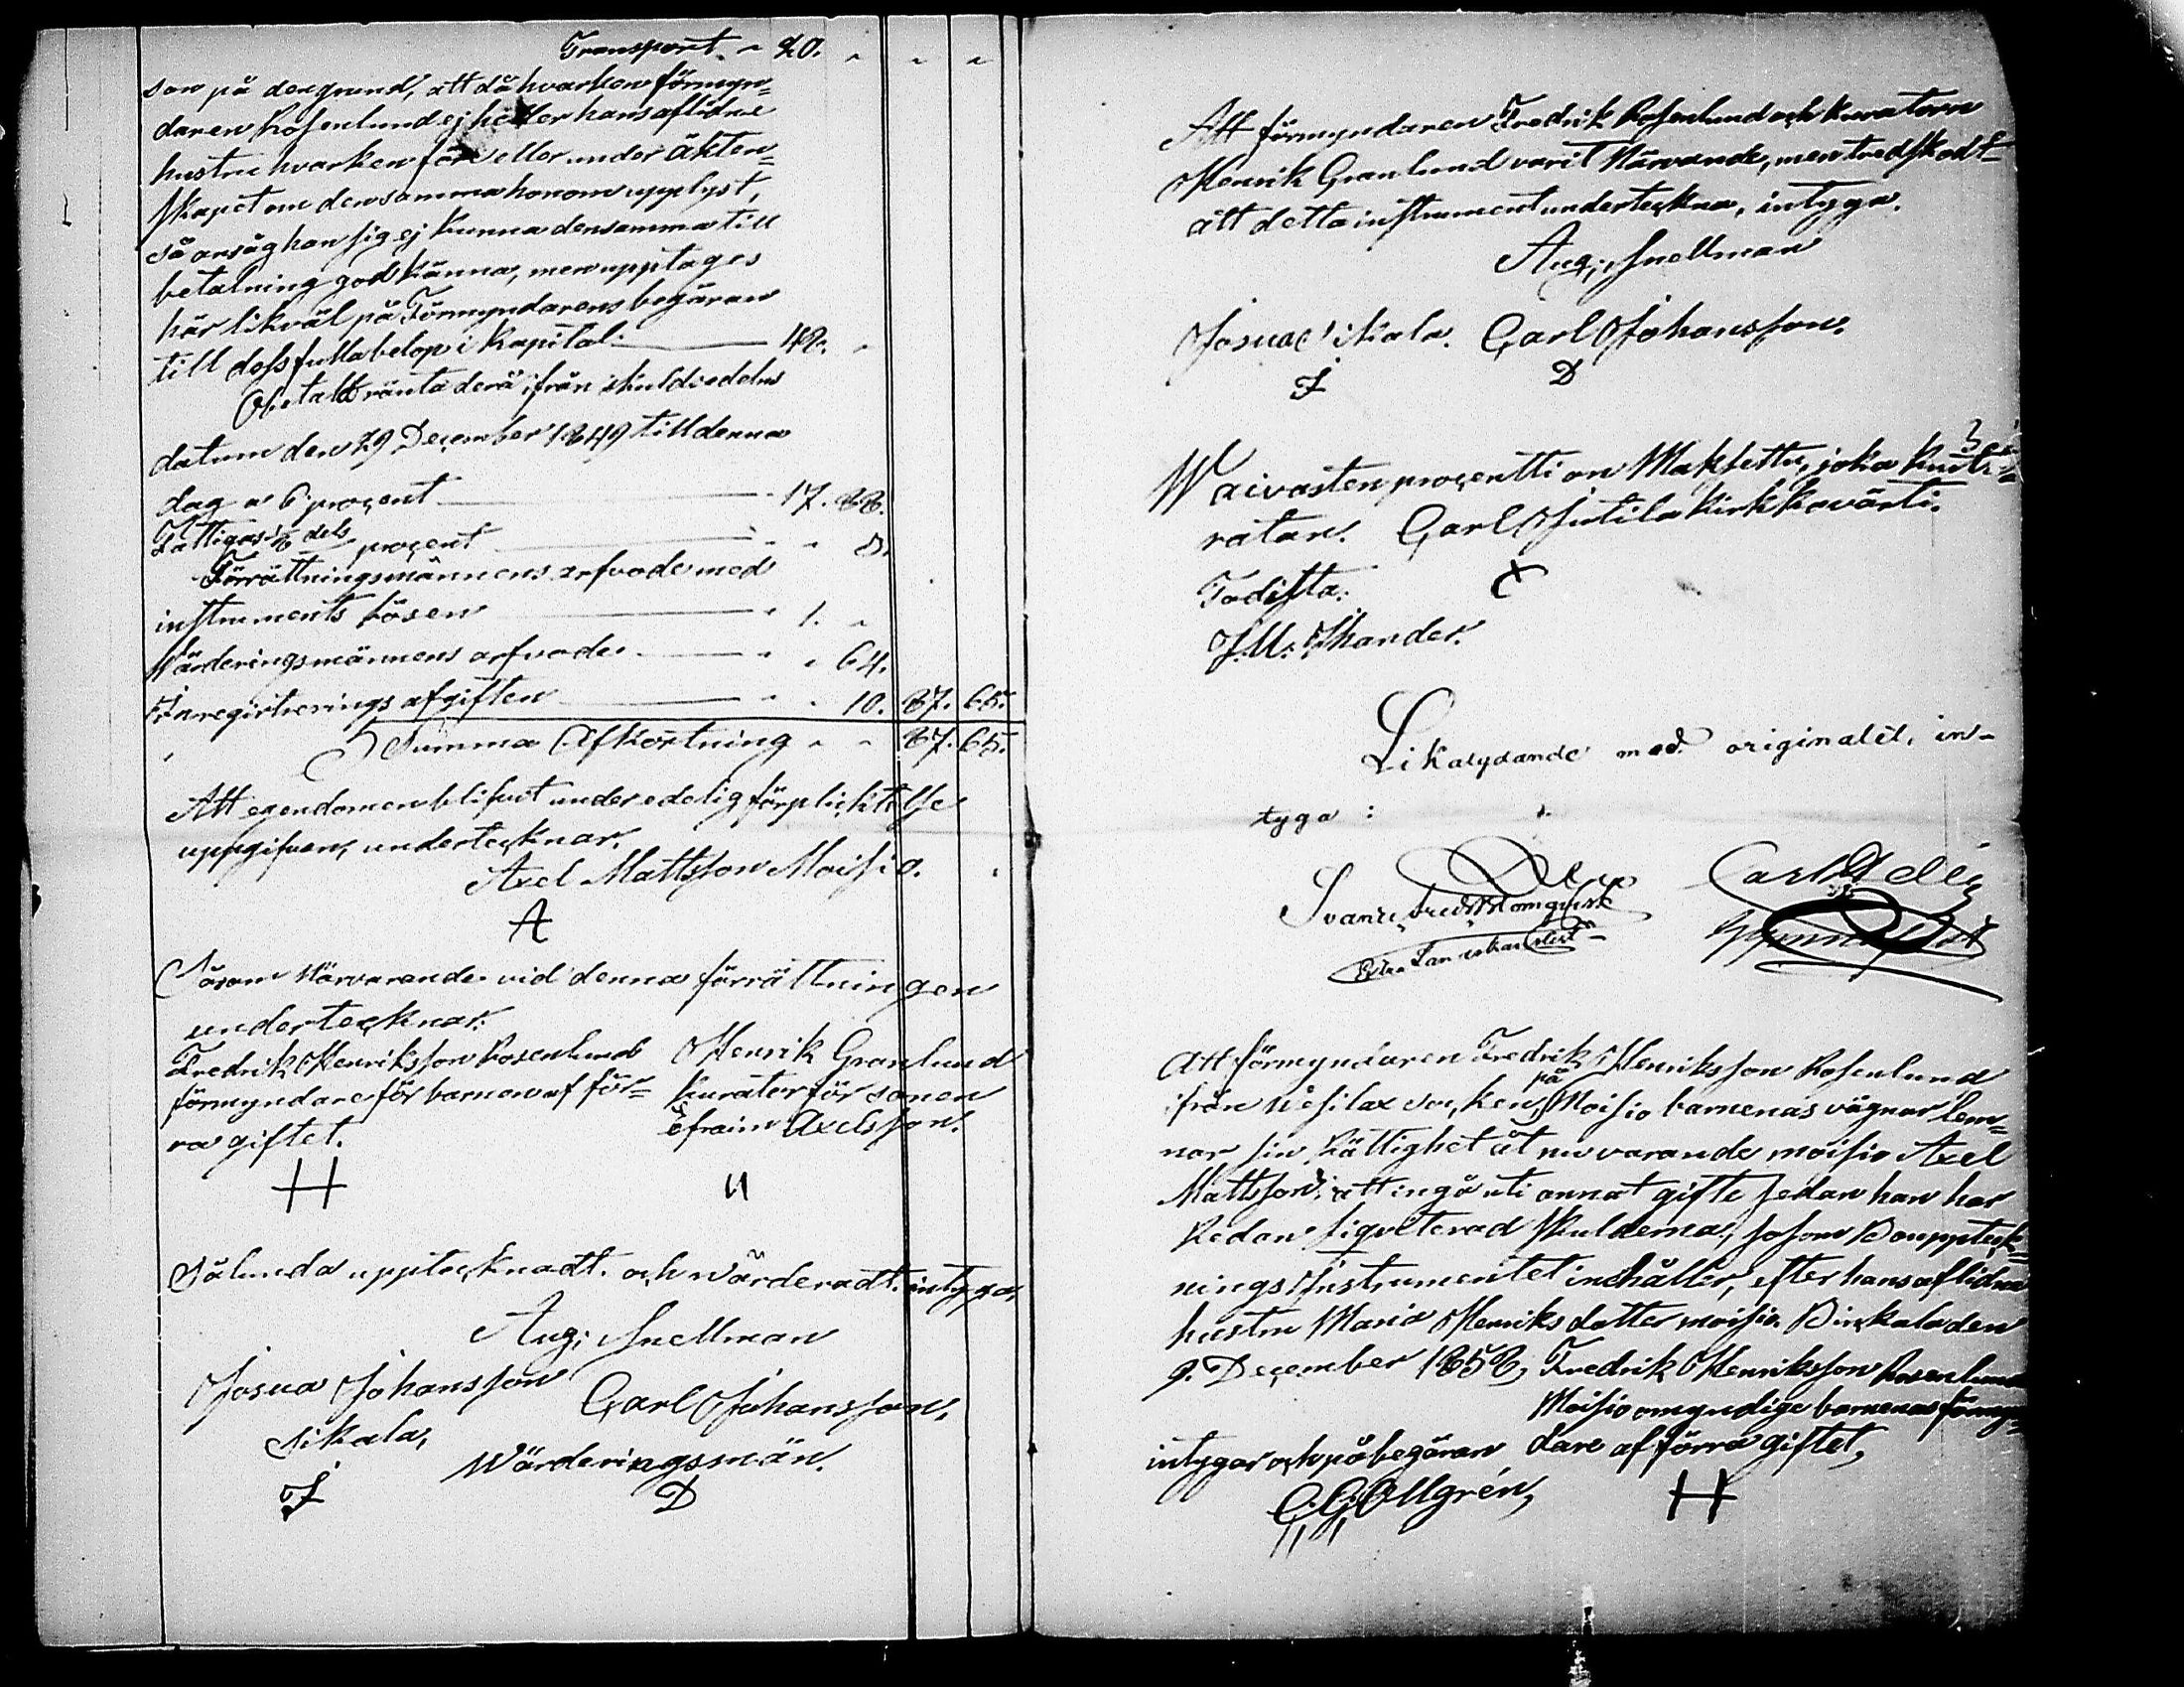 Transport " 20. " " "
son på den grund, att då hvarken förmyn=
daren Rosenlund ej heller hans aflidne
hustru hvarken före eller under äkten=
skapet om densamma honom upplyst,
så ansåg han sig ej kunna densamma till
betalning godkänna, men upptages
här likväl på Förmyndarens begäran
till dess fulla belop i Kapital. 48. "
Obetald ränta derå ifrån skuldsedelns
datum den 29 December 1849 till denna
dag a 6 procent 17. 88.
Fattigas 1/8 dels procent " " 8.
Förrättningsmännens arfvode med
instruments lösen " 1. "
Wärderingsmännens arfvode " " 64.
Inregistrerings afgiften " " 10. 87. 65.
Summa Afkortning " " 87. 65.
Att egendomen blifvit under edelig förplicktelse
uppgifven, undertecknar.
Axel Mattsson Moisio.
A
Såsom Närvarande vid denna förrättningen
undertecknar.
Fredrik Henriksson Rosenlund Henrik Granlund
förmyndare för barnen af för= Kurator för sonen
ra giftet. Efraim Axelsson.
H
Sålunda upptecknadt. och värderadt. intyga,
Aug; Snellman
Josua Johansson Carl Johansson,
Sikala,
Wärderingsmän.
I D
Att förmyndaren Fredrik Rosenlund och Kuratorn
Henrik Granlund varit Närvande, men tredskodt
att detta instrument underteckna, intyga.
Aug; Snellman
Josua Sikala. Carl Johansson.
I D
Waivasten procentti on Maksettu, joka kuiti=
ratan. Carl Jutila Kirkkovärti.
Todista: X
J. M. Ithander.
Likalydande med originalet, in-
tyga :
Att förmyndaren Fredrik Henriksson Rosenlund
ifrån Wesilax Socken, på Moisio barnenas vägnar lem=
nar sin Rättighet åt nuvarande moisio Axel
Mattsson, att ingå uti annat gifte sedan han har
Redan liqviterad skulderna, såsom Bouppteck=
nings Instrumentet inehåller, efter hans aflidna
hustru Maria Henriks dotter moisio. Birckala den
9. December 1858, Fredrik Henriksson Rosenlund
Moisio omyndige barnenas förmyn=
intygar och på begäran dare af förra giftet,
C. G. Ollgrén, H